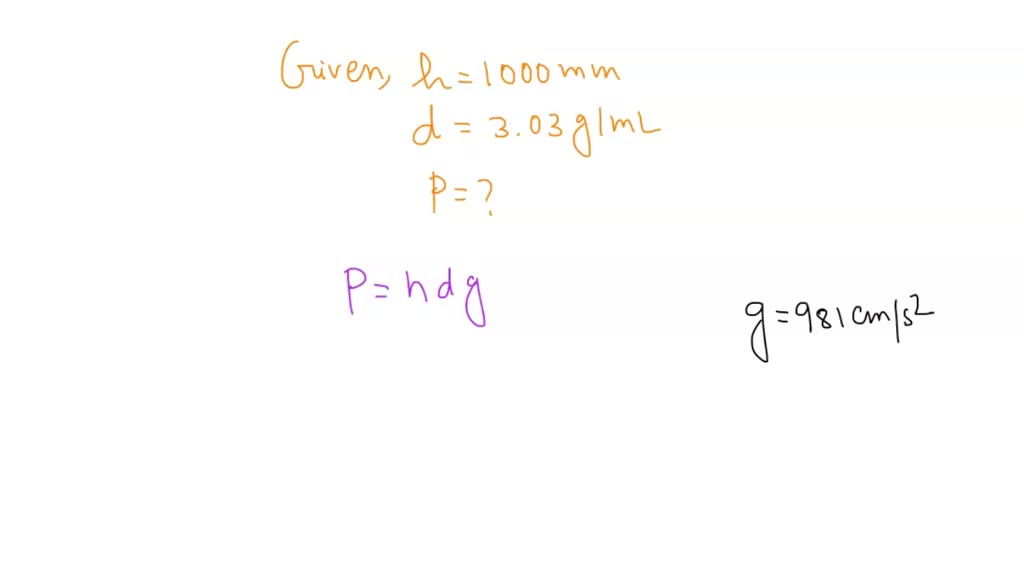 Given, h = 1000 mm
d = 3.03 g/mL
P = ?
P = h d g
g = 981 cm/s²